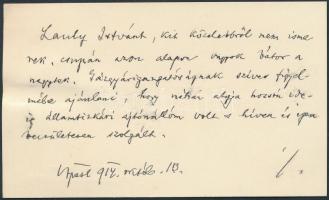 Lauly Istvánt, kit közelebbről nem isme
rek, csupán azon alapon vagyok bátor a
nagytek. Gázgyárigazgatóságnak szíves figyel
mébe ajánlani, hogy néhai atyja hosszú ide
ig államtitkári ajtónállóm volt s híven és
becsületesen szolgált.
Upest 914. októb. 18.